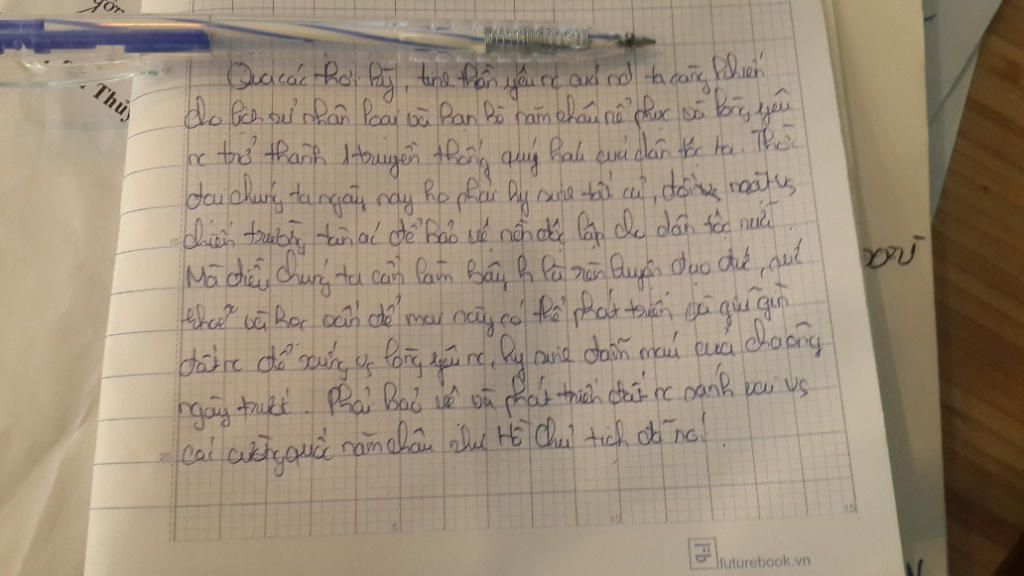 Qua các thời kỳ, tinh thần yêu nc của nd ta càng khiến
cho lịch sử nhân loại và bạn bè năm châu nể phục và lòng yêu
nc trở thành 1 truyền thống quý báu của dân tộc ta. Thời
đại chúng ta ngày nay ko phải hy sinh tất cả, đối vs
chiến trường tàn ác để bảo vệ nền độc lập cho dân tộc nữa.
Mà điều chúng ta cần làm bây h là rèn luyện đạo đức, sức
khoẻ và học vấn để mai này có thể phát triển và giữ gìn
đất nc để xứng vs lòng yêu nc, hy sinh đẫm máu của cha ông
ngày trước. Phải bảo vệ và phát triển đất nc sánh vai vs
các cường quốc năm châu như Hồ Chủ tịch đã nói.
futurebook.vn
Thủy
5
10
15
20